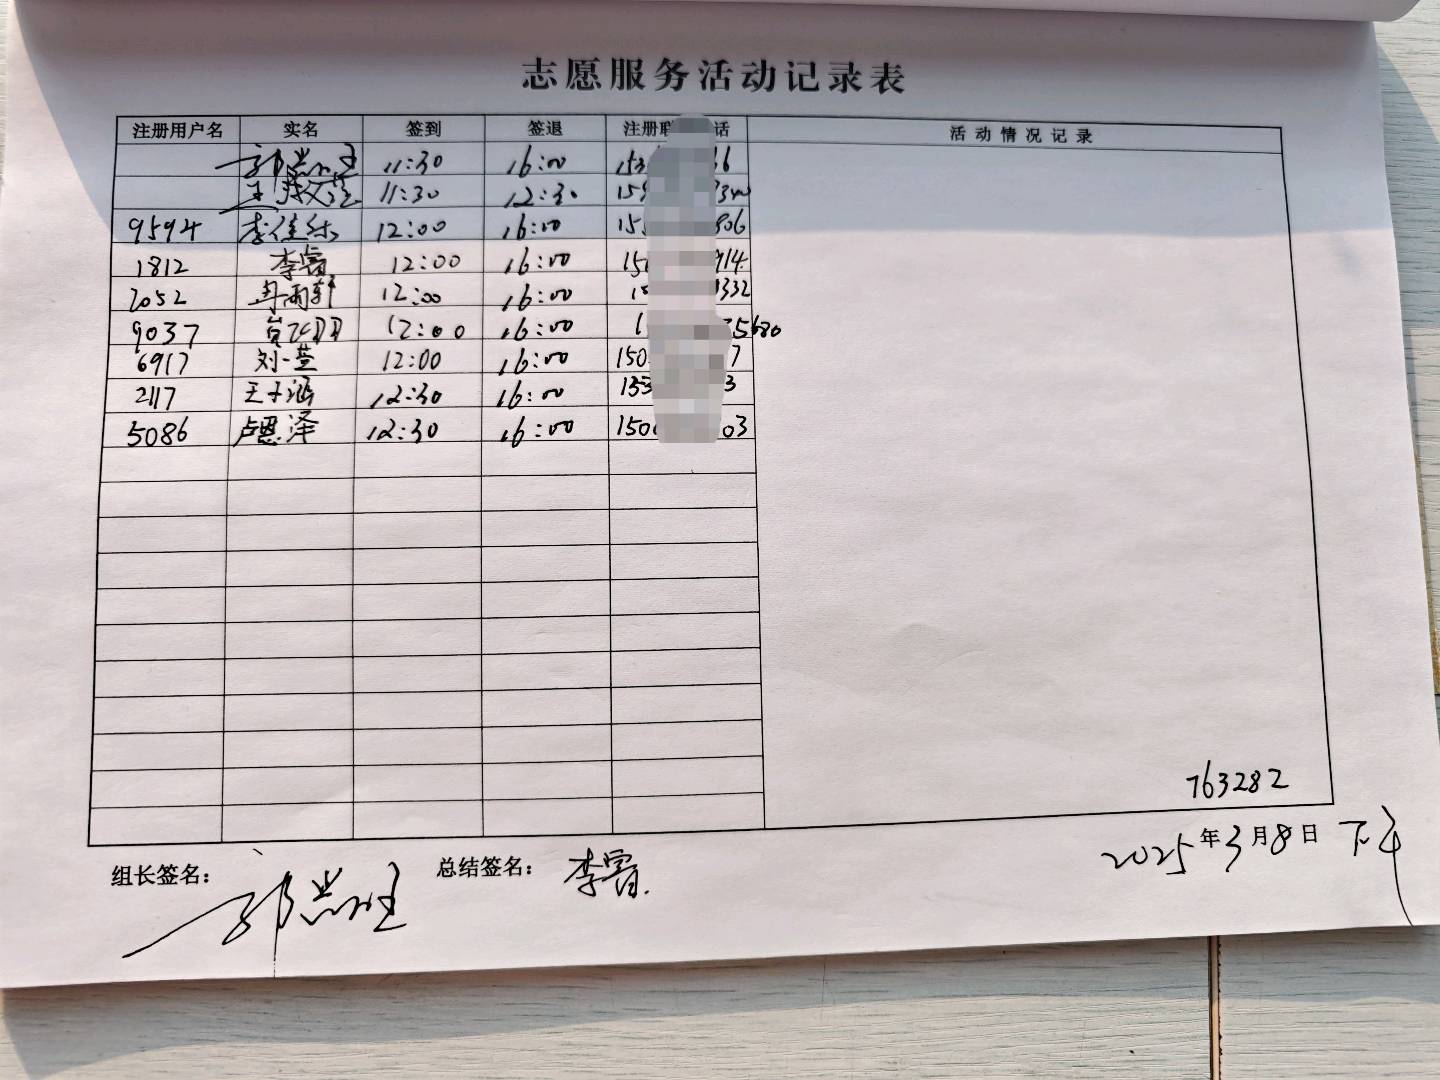 志愿服务活动记录表
注册用户名 实名 签到 签退 注册联 话 活动情况记录
11:30 16:00 153 6
11:30 12:30 15
9594 李佳乐 12:00 16:00 15 806
1812 李睿 12:00 16:00 150 914
2052 12:00 16:00 1 332
9037 12:00 16:00 1 5680
6917 刘一萱 12:00 16:00 150 7
2117 王子涵 12:30 16:00 133 3
5086 卢恩泽 12:30 16:00 150 03
763282
2025年3月8日 下午
组长签名: 总结签名: 李睿.